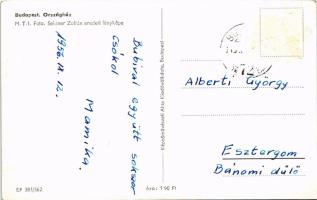 Budapest. Országház
M.T.I. Foto. Seidner Zoltán eredeti fényképe
Bubival együtt sokszor
csókol
Mamika.
1956. IX. 12.
Képzőművészeti Alap Kiadóvállalata, Budapest
Alberti György
Esztergom
Bánomi dűlő
Ára: 1·90 Ft